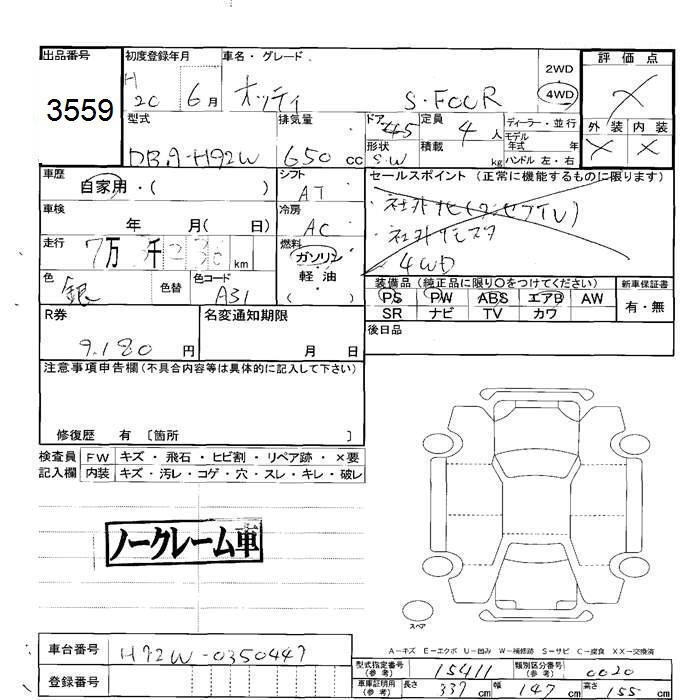 出品番号
3559
初度登録年月
H 20 6月
車名・グレード
オッティ S・FOUR
2WD
4WD
評価点
X
外装 内装
X X
型式
DBA-H92W
排気量
650 cc
ドア
45
形状
S.W
定員
4 人
積載
kg
ディーラー・並行
モデル年式 年
ハンドル 左・右
車歴
自家用・( )
シフト
AT
セールスポイント (正常に機能するものに限ります)
4WD
車検
年 月( 日)
冷房
AC
走行
7万 千 km
燃料
ガソリン・軽油
色
銀
色替
色コード
A31
装備品(純正品に限り○をつけてください)
PS PW ABS エアB AW
SR ナビ TV カワ
新車保証書
有・無
R券
9,180 円
名変通知期限
月 日
後日品
注意事項申告欄(不具合内容等は具体的に記入して下さい)
修復歴 有 〔箇所 〕
検査員記入欄
FW キズ・飛石・ヒビ割・リペア跡・×要
内装 キズ・汚レ・コゲ・穴・スレ・キレ・破レ
ノークレーム車
スペア
A-キズ E-エクボ U-凹み W-補修跡 S-サビ C-腐食 XX-交換済
車台番号
H92W-0350447
登録番号
型式指定番号(参考)
15411
類別区分番号(参考)
0020
車庫証明用(参考)
長さ 339 cm
幅 147 cm
高さ 155 cm